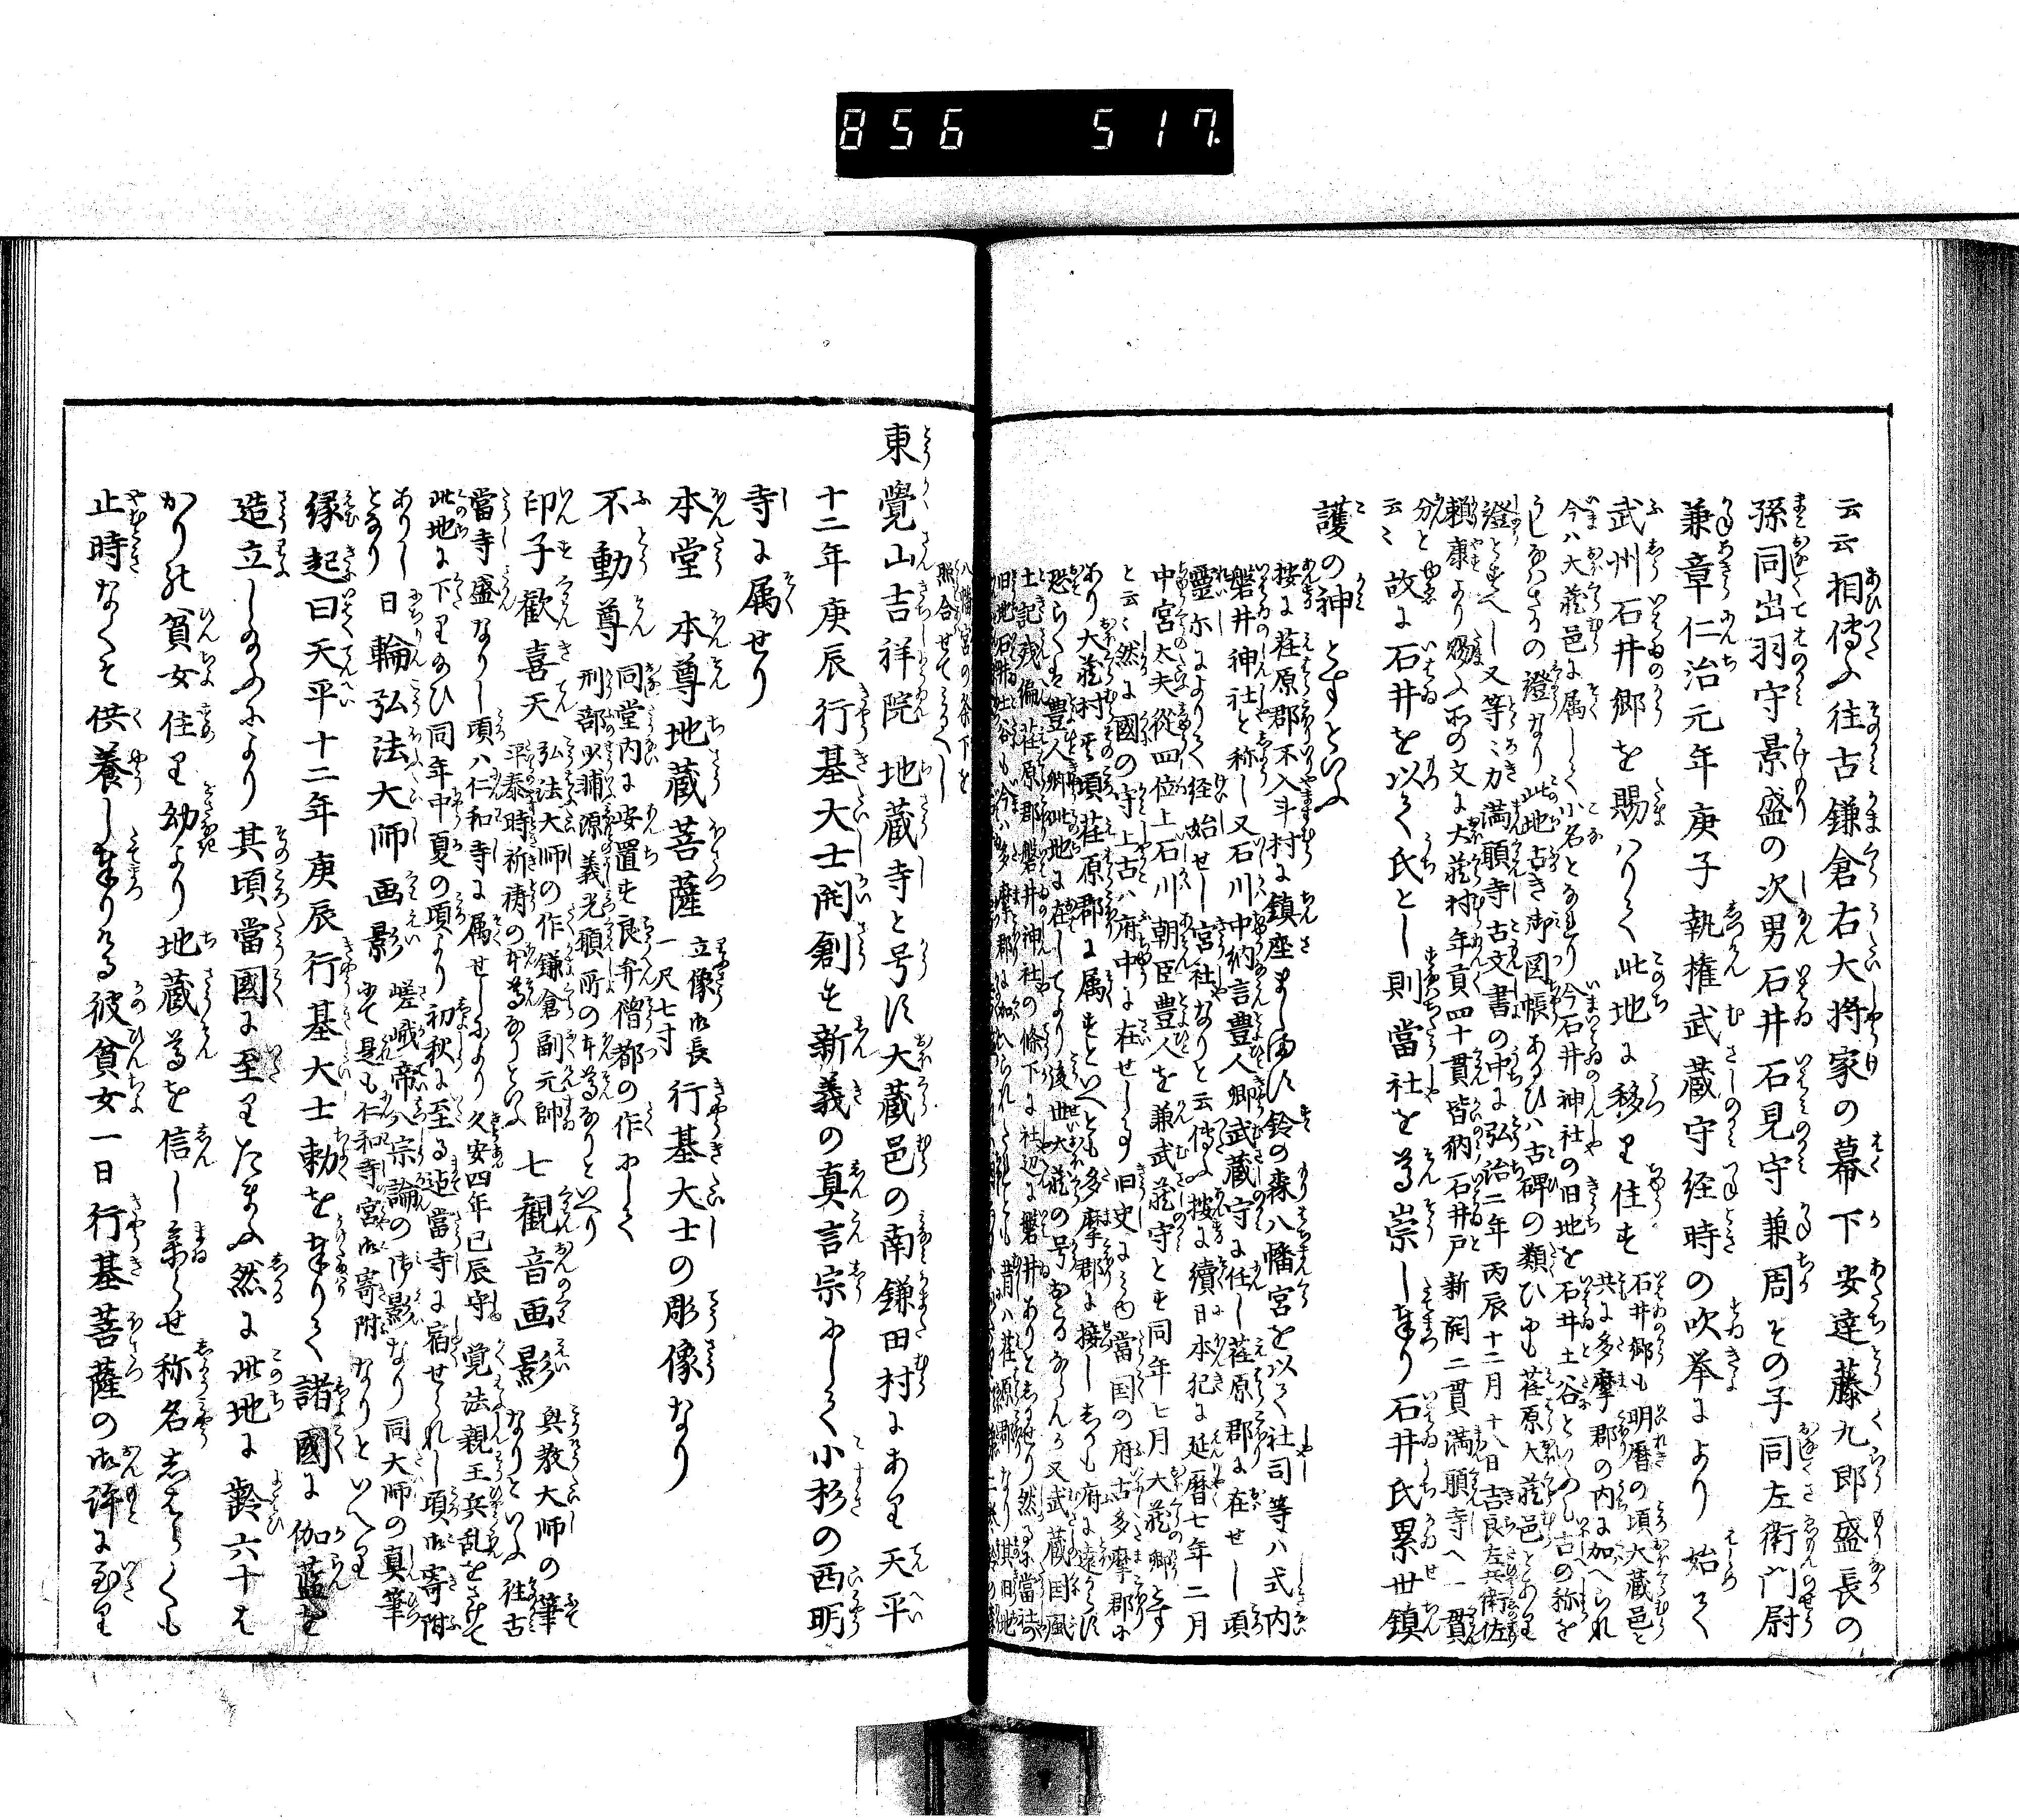 856 517.
云云相傳ふ往古鎌倉右大将家の幕下安達藤九郎盛長の
孫同出羽守景盛の次男石井石見守兼周その子同左衛門尉
兼章仁治元年庚子執権武蔵守経時の吹挙により始て
武州石井郷を賜りて此地に移り住す
石井郷も明暦の頃大蔵邑と
共に多摩郡の内に加へられ
今ハ大蔵邑に属して小名となれり今石井神社の旧地を石井土谷と
證とすへし又等々力満願寺古文書の中に弘治二年丙辰十二月十八日吉良左兵衛佐
頼康より賜ふ所の文に大蔵村年貢四十貫皆納石井戸新開二貫満願寺へ一貫
分と
云々故に石井を以て氏とし則當社を尊崇し奉り石井氏累世鎮
護の神とすといふ
按に荏原郡不入斗村に鎮座まします鈴の森八幡宮を以て社司等ハ式内
磐井神社と称し又石川中納言豊人卿武蔵守に任し荏原郡に在せし頃
霊示によりて経始せし宮社なりと云傳ふ按に續日本紀に延暦七年二月
中宮大夫従四位上石川朝臣豊人を兼武蔵守とす同年七月大蔵卿とす
と云々然に國の守上古ハ府中に在せし事旧史にみゆ當国の府ハ古多摩郡に
あり大蔵村其頃荏原郡に属すといへとも多摩郡に接ししかも府に遠からす
恐らくは豊人卿此地に在してより後世大蔵の号おこるならんか又武蔵国風
土記残編荏原郡磐井神社の條下に社辺に磐井ありとしるせり然るに當社の
八幡宮の条下と
照合せてみるへし
東覺山吉祥院地蔵寺と号す大蔵邑の南鎌田村にあり天平
十二年庚辰行基大士開創す新義の真言宗にして小杉の西明
寺に属せり
本堂本尊地蔵菩薩
立像御長
一尺七寸
行基大士の彫像なり
不動尊
同堂内に安置す良弁僧都の作にして
刑部少輔源義光願所の本尊なりといへり
印子歓喜天
弘法大師の作鎌倉副元帥
平泰時祈祷の本尊なりといふ
七観音画影
興教大師の筆
なりといふ往古
當寺盛なりし頃ハ仁和寺に属せしにより久安四年己辰守覚法親王兵乱をさけて
此地に下りたまひ同年中夏の頃より初秋に至る迠當寺に宿せられし頃御寄附
ありし
となり
日輪弘法大師画影
嵯峨帝八宗論の御影なり同大師の真筆
にて是も仁和寺宮御寄附なりといへり
縁起曰天平十二年庚辰行基大士勅を奉りて諸國に伽藍を
造立しめふにより其頃當國に至りたまふ然に此地に齢六十は
かりの貧女住り幼より地蔵尊を信し奉らせ称名しはらくも
止時なくそ供養し奉りける彼貧女一日行基菩薩の御許に至り